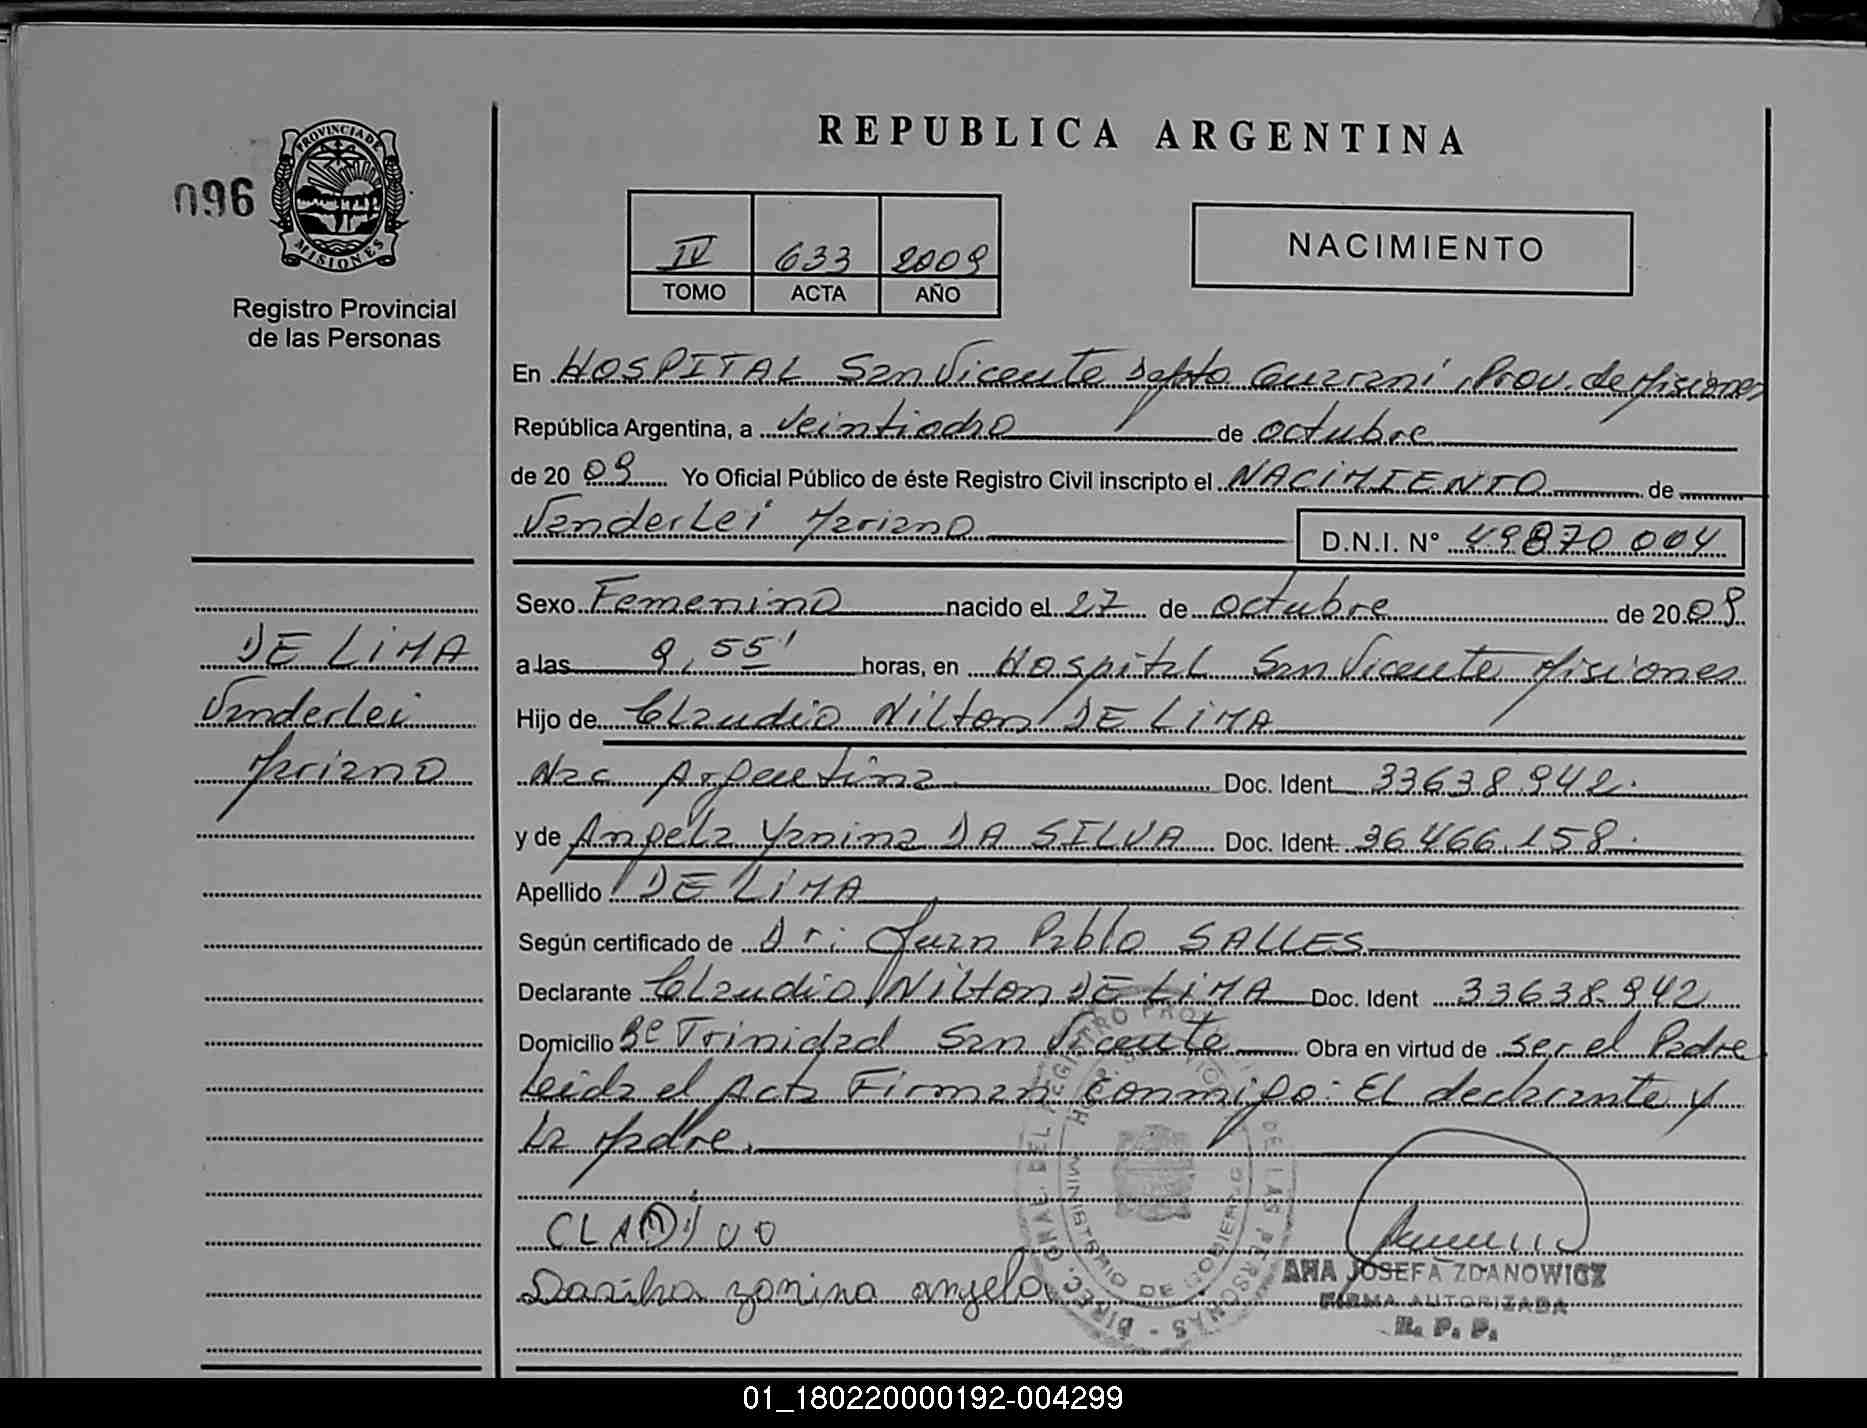 REPUBLICA ARGENTINA
096
PROVINCIA DE
MISIONES
Registro Provincial
de las Personas
IV 633 2009
TOMO ACTA AÑO
NACIMIENTO
En HOSPITAL San Vicente Depto Guarani, Prov. de Misiones
República Argentina, a de octubre
de 20 09 Yo Oficial Público de éste Registro Civil inscripto el NACIMIENTO de
Vanderlei Mariano
D.N.I. Nº 49870 004
Sexo Femenino nacido el 27 de octubre de 20 09
a las 9,55' horas, en Hospital San Vicente Misiones
Hijo de Claudio Nilton DE LIMA
Nac Argentina Doc. Ident 33638.942.
y de Angela Yanina DA SILVA Doc. Ident. 36466.158.
Apellido DE LIMA
Según certificado de Dr: Juan Pablo SALLES
Declarante Claudio Nilton DE LIMA Doc. Ident 33638.942
Domicilio Bº Trinidad San Vicente Obra en virtud de ser el Padre
Leida el Acta Firman conmigo: El declarante y
la Madre.
DE LIMA
Vanderlei
Mariano
yanina angela
MINISTERIO DE GOBIERNO
ANA JOSEFA ZDANOWICZ
FIRMA AUTORIZADA
R. P. P.
01_180220000192-004299